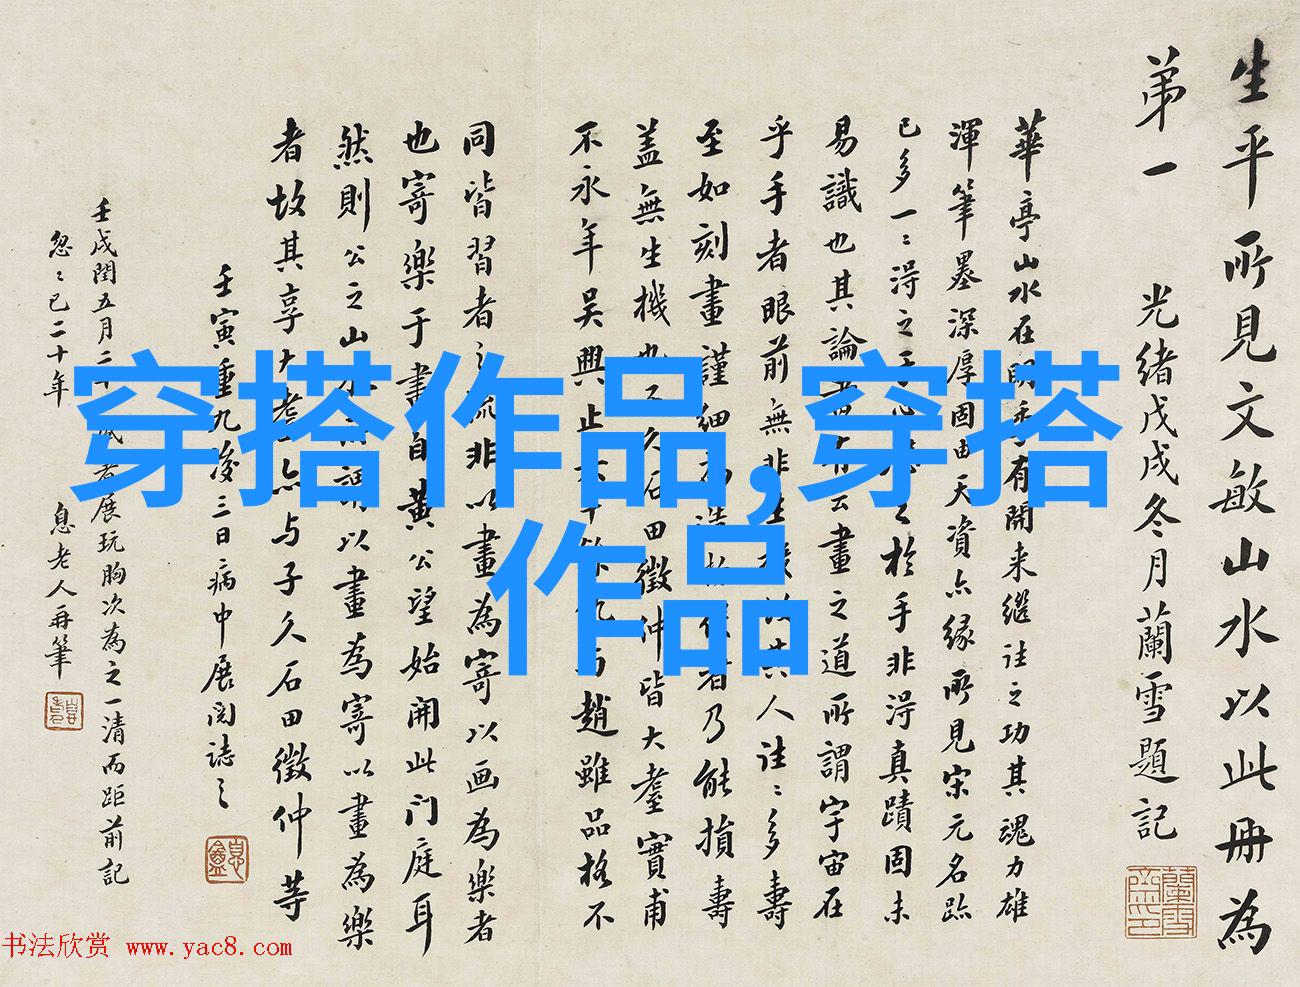 生平所見文敏山水以此冊為
弟一 光緒戊戌冬月蘭雪題記
華亭山水在明季有開來繼往之功其魂力雄
渾筆墨深厚固由天資亦緣所見宋元名跡
已多一〻淂之于心 之於手非淂真蹟固未
易識也其論 有云畫之道所謂宇宙在
乎手者眼前無非生機 其人往〻多壽
至如刻畫謹細為造 者乃能損壽
蓋無生機也 久石田徵仲皆大耋實甫
不永年吳興止 餘 趙雖品格不
同皆習者之流非以畫為寄以画為樂者
也寄樂于畫自黃公望始開此门庭耳
然則公之山水 謂以畫為寄以畫為樂
者故其享大耋亦与子久石田徵仲等
壬寅重九後三日病中展閱誌之
壬戌閏五月二十 展玩胸次為之一清而距前記
忽〻已二十年 息老人再筆
穿搭作品,穿搭
作品
书法欣赏 www.yac8.com